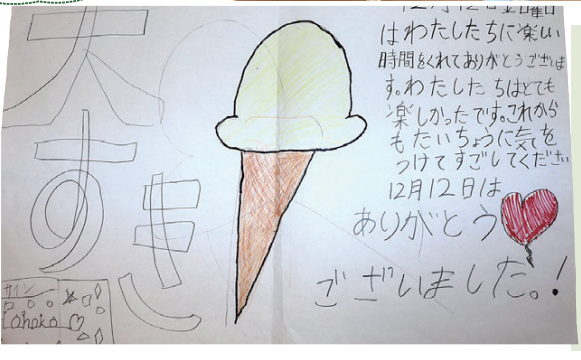 大すき
12月12日金曜日
はわたしたちに楽しい
時間をくれてありがとうございま
す。わたしたちはとても
楽しかったです。これから
もたいちょうに気を
つけてすごしてください
12月12日は
ありがとう
ございました。!
サイン